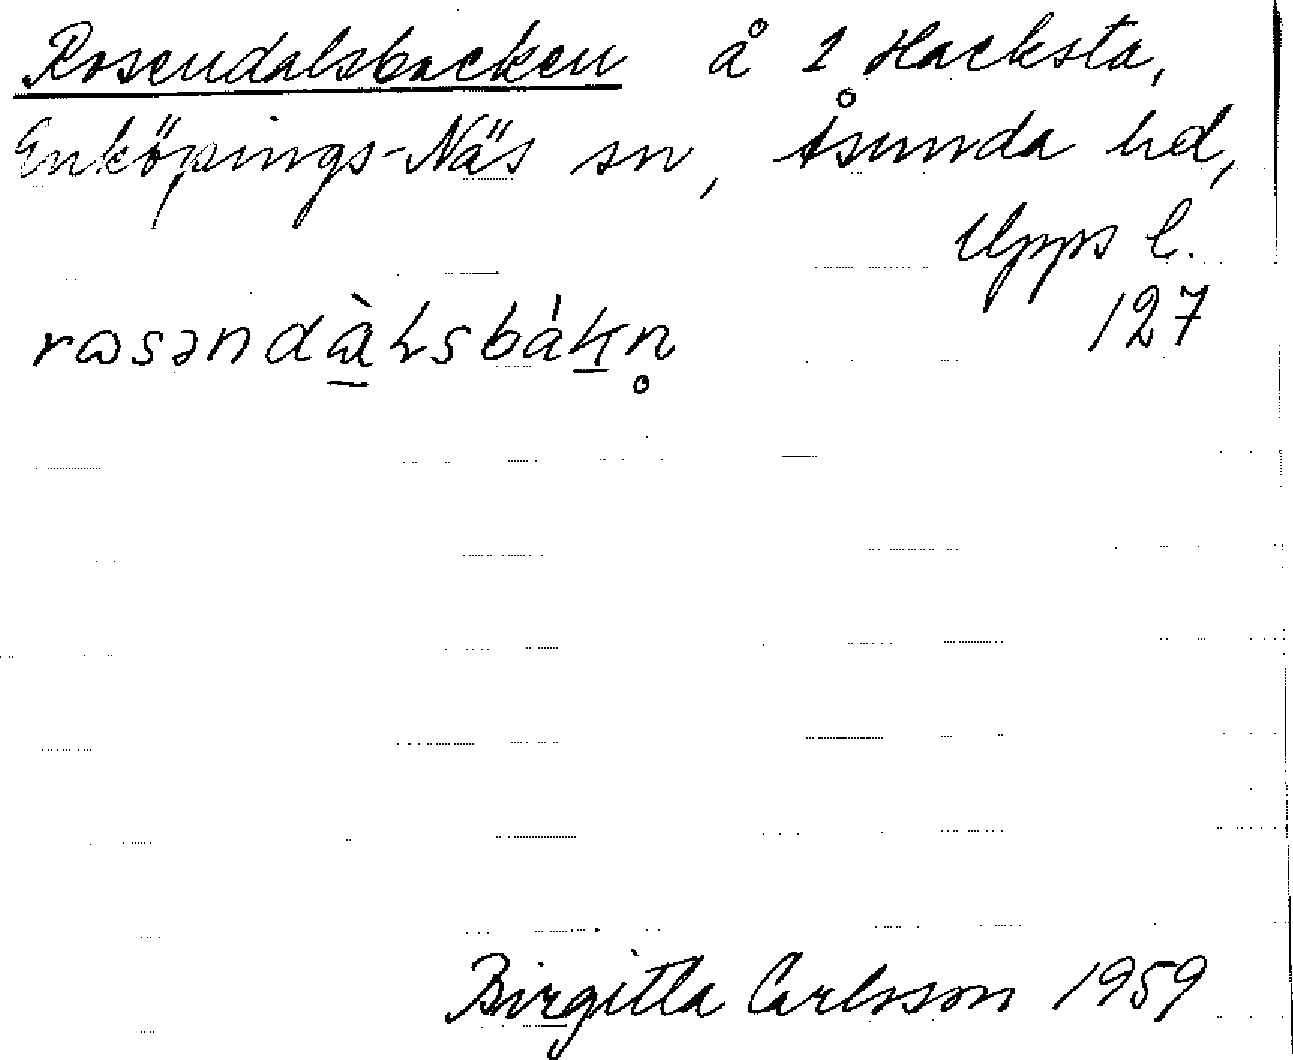 Rosendalsbacken å 1 Hacksta,
Enköpings-Näs sn, Åsunda hd,
Upps l.
127
rωsəndàɫsbákn̥
Birgitta Carlsson 1959